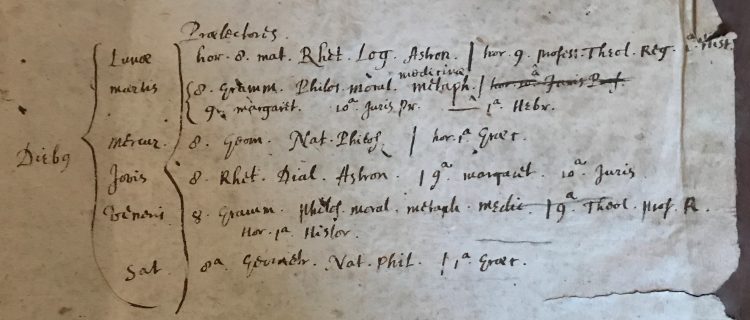 Prælectores.
Lunæ hor. 8. mat. Rhet. Log. Astron. | hor. 9. Profess. Theol. Reg. 1ª. Hist.
Martis 8. Gramm. Philos. moral. medicina metaph. | hor. 10ª Juris Prof.
9. margaret. 10ª Juris Pr. — 1ª Hebr.
Diebus Mercur. 8. Geom. Nat. Philos. | hor. 1ª Græc.
Jovis 8. Rhet. Dial. Astron. | 9ª. margaret. 10ª. Juris.
Veneris 8. Gramm. Philos. moral. metaph. medic. | 9ª Theol. Prof. R.
Hor. 1ª Histor.
Sat. 8ª Geometr. Nat. Phil. | 1ª Græc.